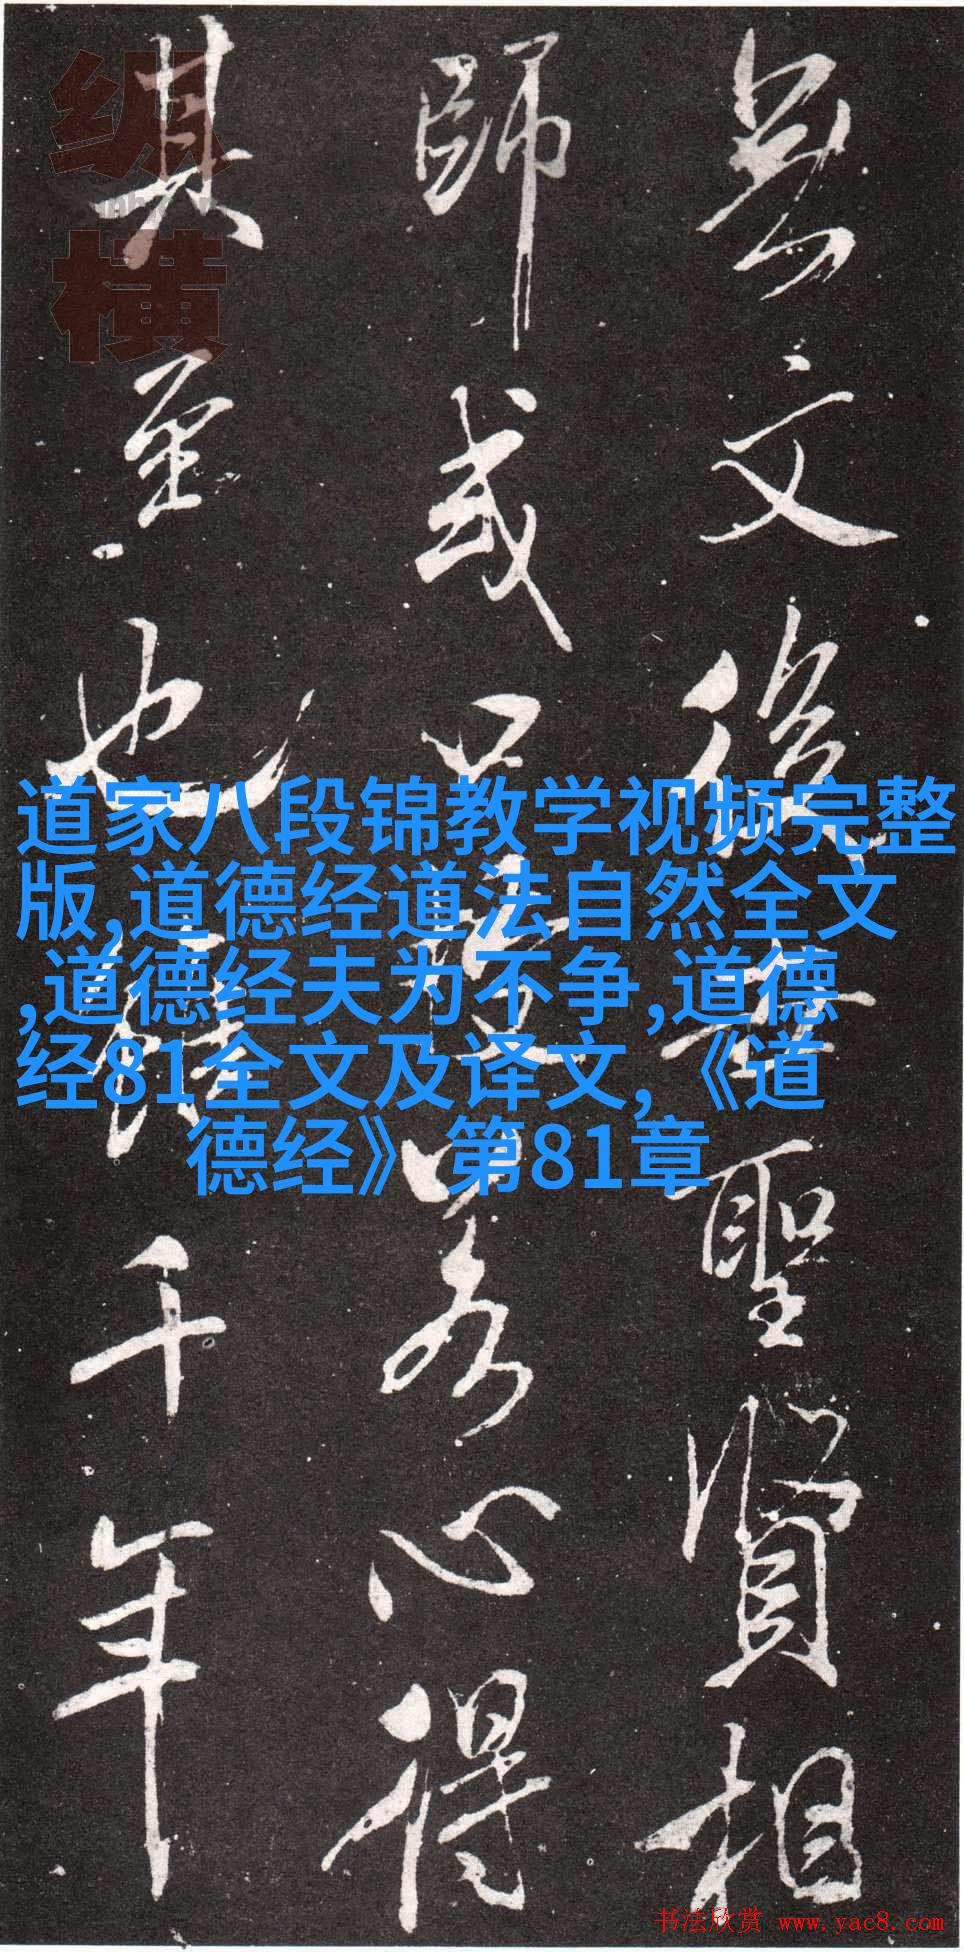 其至也
千年
師或
心得
文後
聖賢相
纵横
道家八段锦教学视频完整
版,道德经道法自然全文
,道德经夫为不争,道德
经81全文及译文,《道
德经》第81章
书法欣赏 www.yac8.com